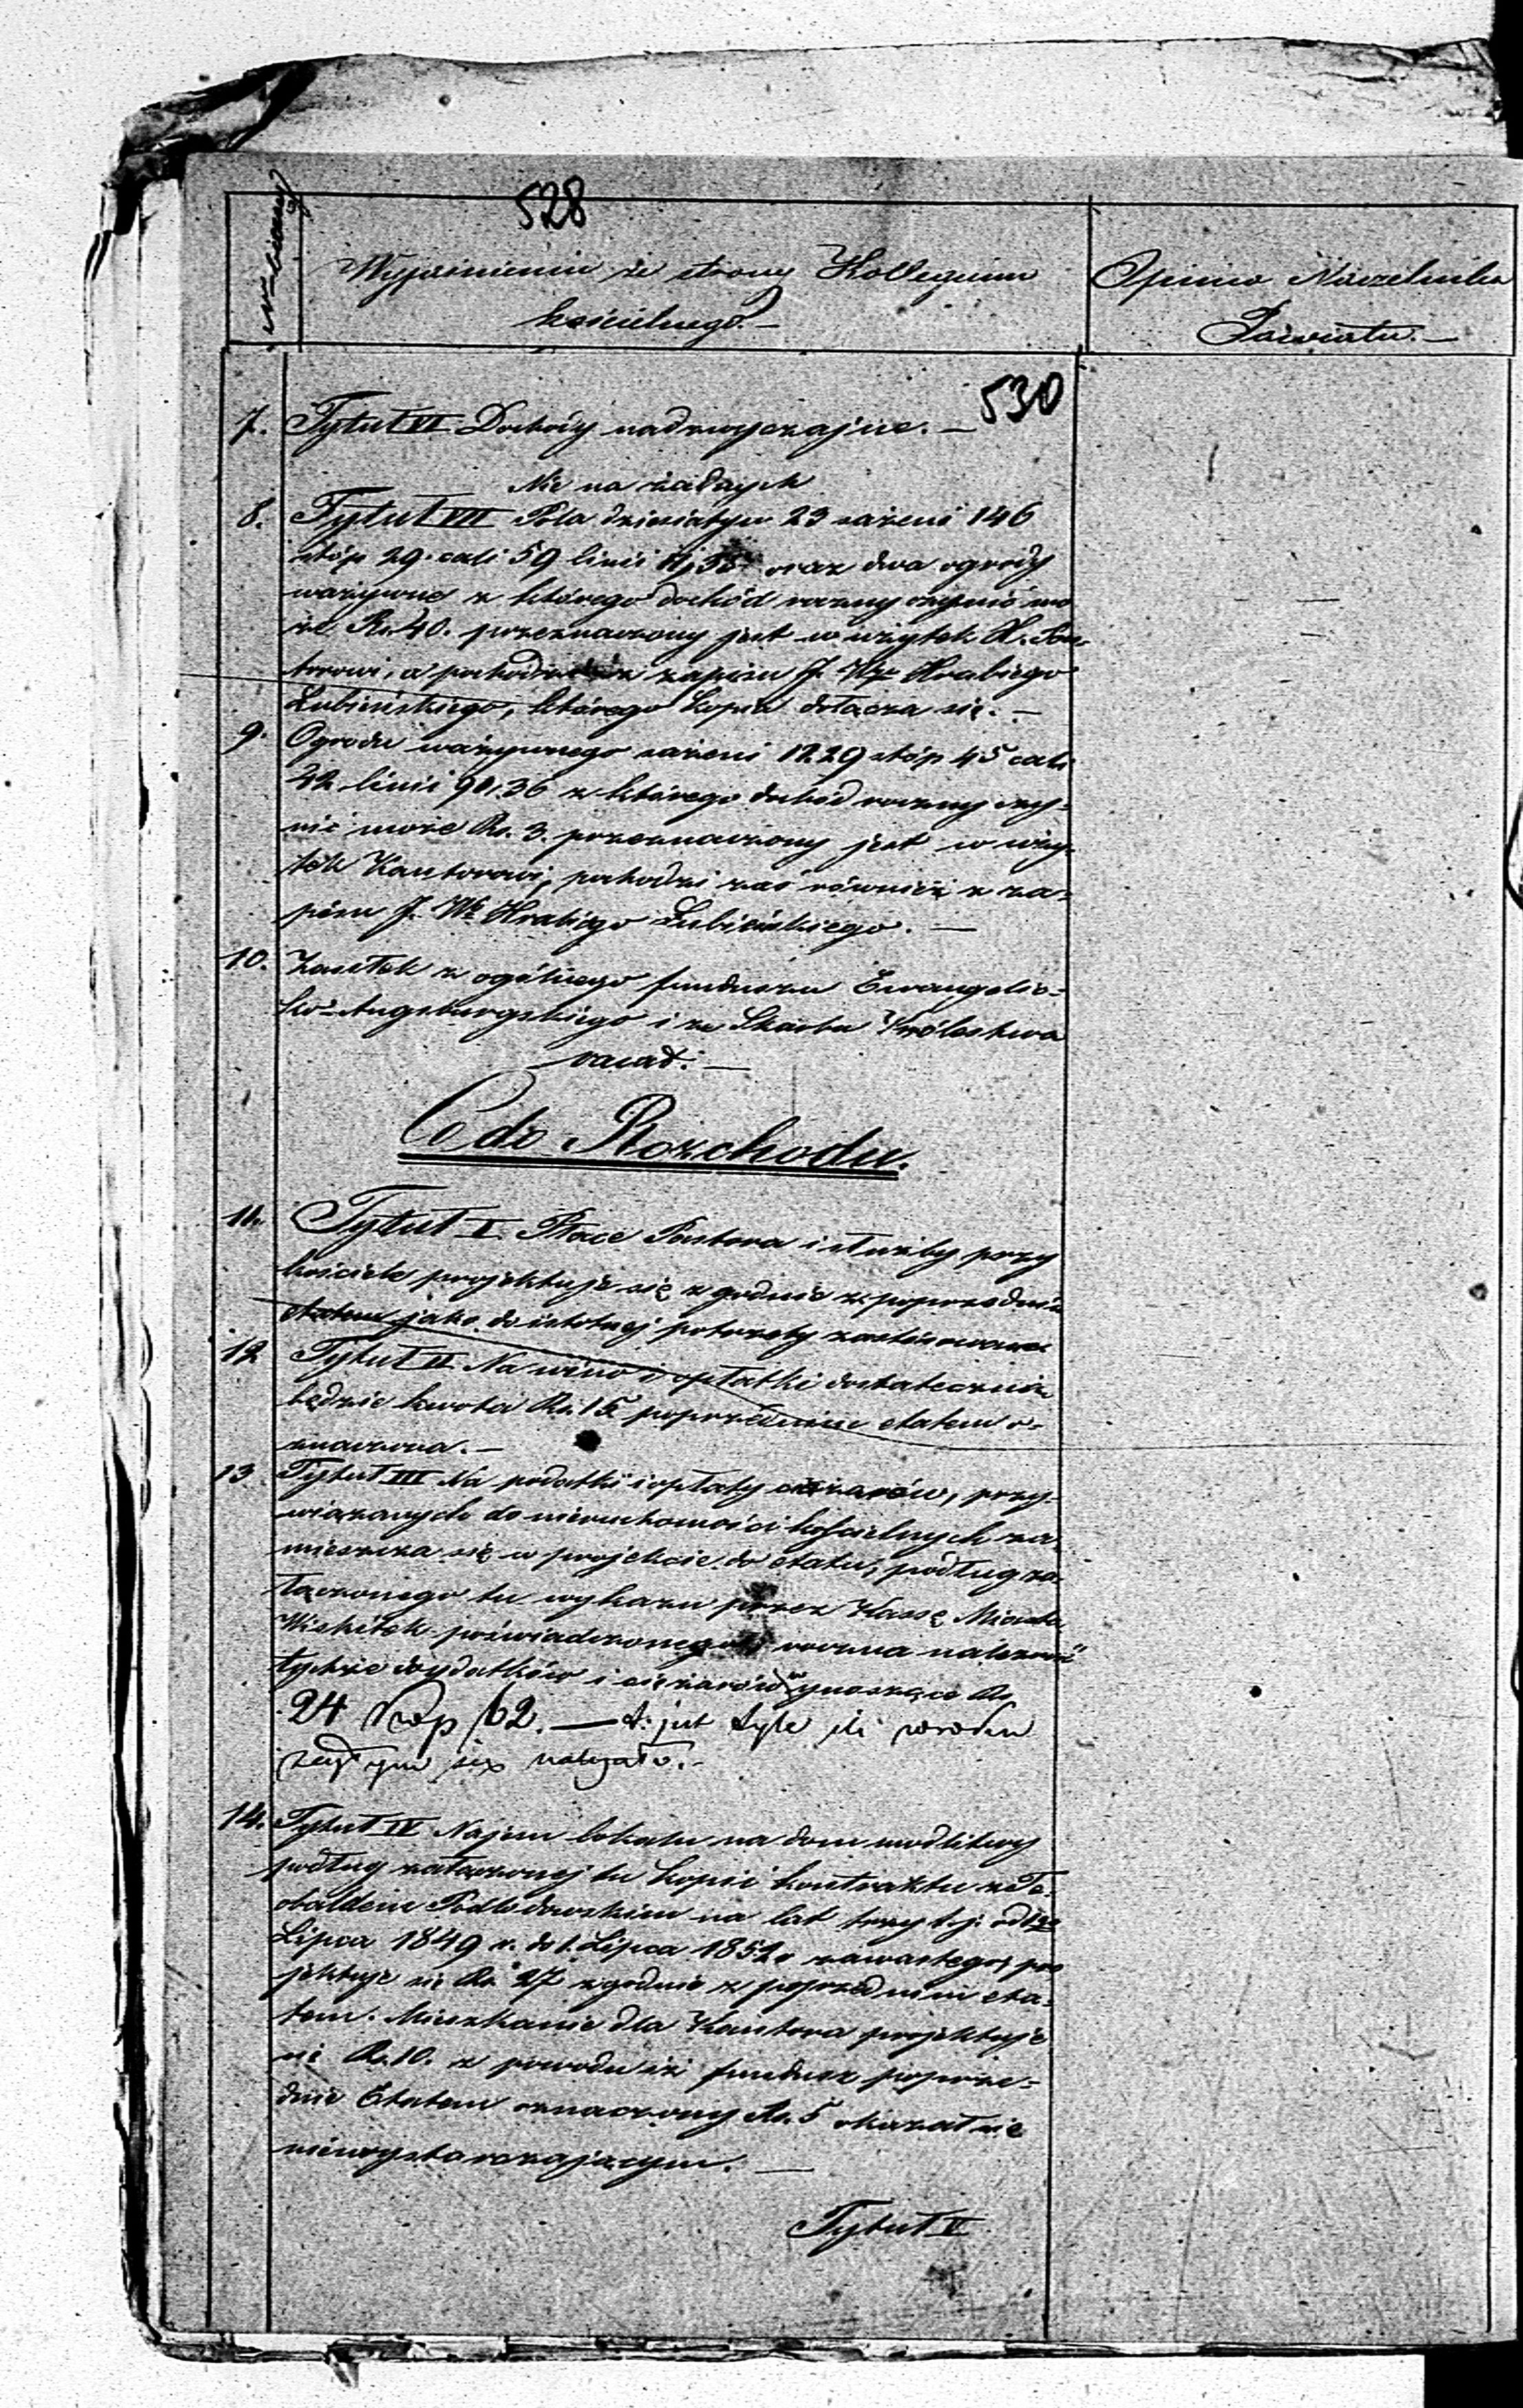 528
Wyjaśnienie ze strony Kollegium
kościelnego.—
Opinia Naczelnika
Powiatu.—
530
7. Tytuł VI Dochody nadzwyczajne.—
Nie ma żadnych
8. Tytuł VII Pola dziesiatyn 23 sażeni 146
stóp 29 cali 59 linii oraz dwa ogrody
warzywne z którego dochód roczny czynić mo
że Rs. 40. przeznaczony jest w użytek X. Pas-
torowi, a pochodzi z zapisu J. W. Hrabiego
Łubieńskiego, którego kopia dołącza się.—
9. Ogrodu warzywnego sażeni 1229 stóp 45 cali
22 linii 90,36 z którego dochód roczny czy-
nić może Rs. 3. przeznaczony jest w uży-
tek Kantorowi, pochodzi zaś również z za-
pisu J. W. Hrabiego Łubieńskiego.—
10. Zasiłek z ogólnego funduszu Ewangelic-
ko-Augsburgskiego i ze Skarbu Królestwa
vacat.—
Co do Rozchodu.
11. Tytuł I. Płace Pastora i służby przy
kościele projektuje się zgodnie z poprzednim
etatem jako do istotnej potrzeby zastosowane
12 Tytuł II Na wino i opłatki dostateczną
będzie kwota Rs. 15 poprzednim etatem o-
znaczona.—
13 Tytuł III Na podatki i opłaty ciężarów, przy-
wiązanych do nieruchomości kościelnych za
mieszcza się w projekcie do etatu, podług za
łączonego tu wykazu przez Kassę Miasta
Wiskitek poświadczonego, roczna należność
tychże wydatków i ciężarów wynosząca Rs
24 kop 62.— t. jest tyle ile
się należało.—
14. Tytuł IV Najem lokalu na dom modlitwy
podług załączonej tu kopii kontraktu z Te-
obaldem Podlodowskim na lat trzy t. j. od 1go
Lipca 1849 r. do 1. Lipca 1852 r zawartego, pro
jektuje się Rs. 27 zgodnie z poprzednim eta-
tem. Mieszkanie dla Kantora projektuje
się Rs. 10. z powodu iż fundusz poprze-
dnio Etatem oznaczony Rs. 5 okazał się
niewystarczającym.—
Tytuł V